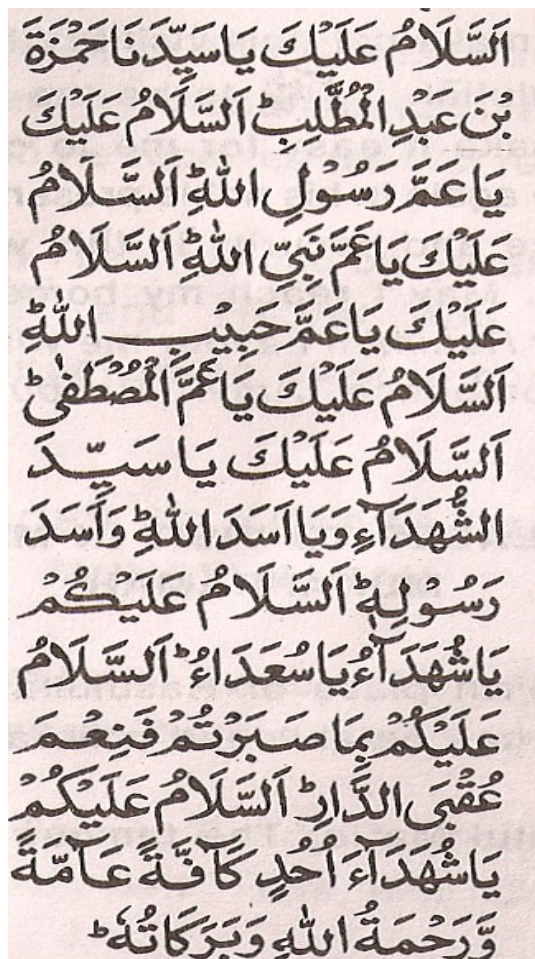 اَلسَّلَامُ عَلَيْكَ يَاسَيِّدَنَا حَمْزَةَ
بْنَ عَبْدِ الْمُطَّلِبِ ؕ اَلسَّلَامُ عَلَيْكَ
يَاعَمَّ رَسُوْلِ اللهِ ؕ اَلسَّلَامُ
عَلَيْكَ يَاعَمَّ نَبِيِّ اللهِ ؕ اَلسَّلَامُ
عَلَيْكَ يَاعَمَّ حَبِيْبِ اللهِ ؕ
اَلسَّلَامُ عَلَيْكَ يَاعَمَّ الْمُصْطَفٰى ؕ
اَلسَّلَامُ عَلَيْكَ يَا سَيِّدَ
الشُّهَدَآءِ وَيَا اَسَدَ اللهِ ؕ وَاَسَدَ
رَسُوْلِهٖ ؕ اَلسَّلَامُ عَلَيْكُمْ
يَاشُهَدَآءُ يَاسُعَدَاءُ ؕ اَلسَّلَامُ
عَلَيْكُمْ بِمَا صَبَرْتُمْ فَنِعْمَ
عُقْبَى الدَّارِ ؕ اَلسَّلَامُ عَلَيْكُمْ
يَاشُهَدَآءَ اُحُدٍ كَآفَّةً عَآمَّةً
وَّرَحْمَةُ اللهِ وَبَرَكَاتُهٗ ؕ